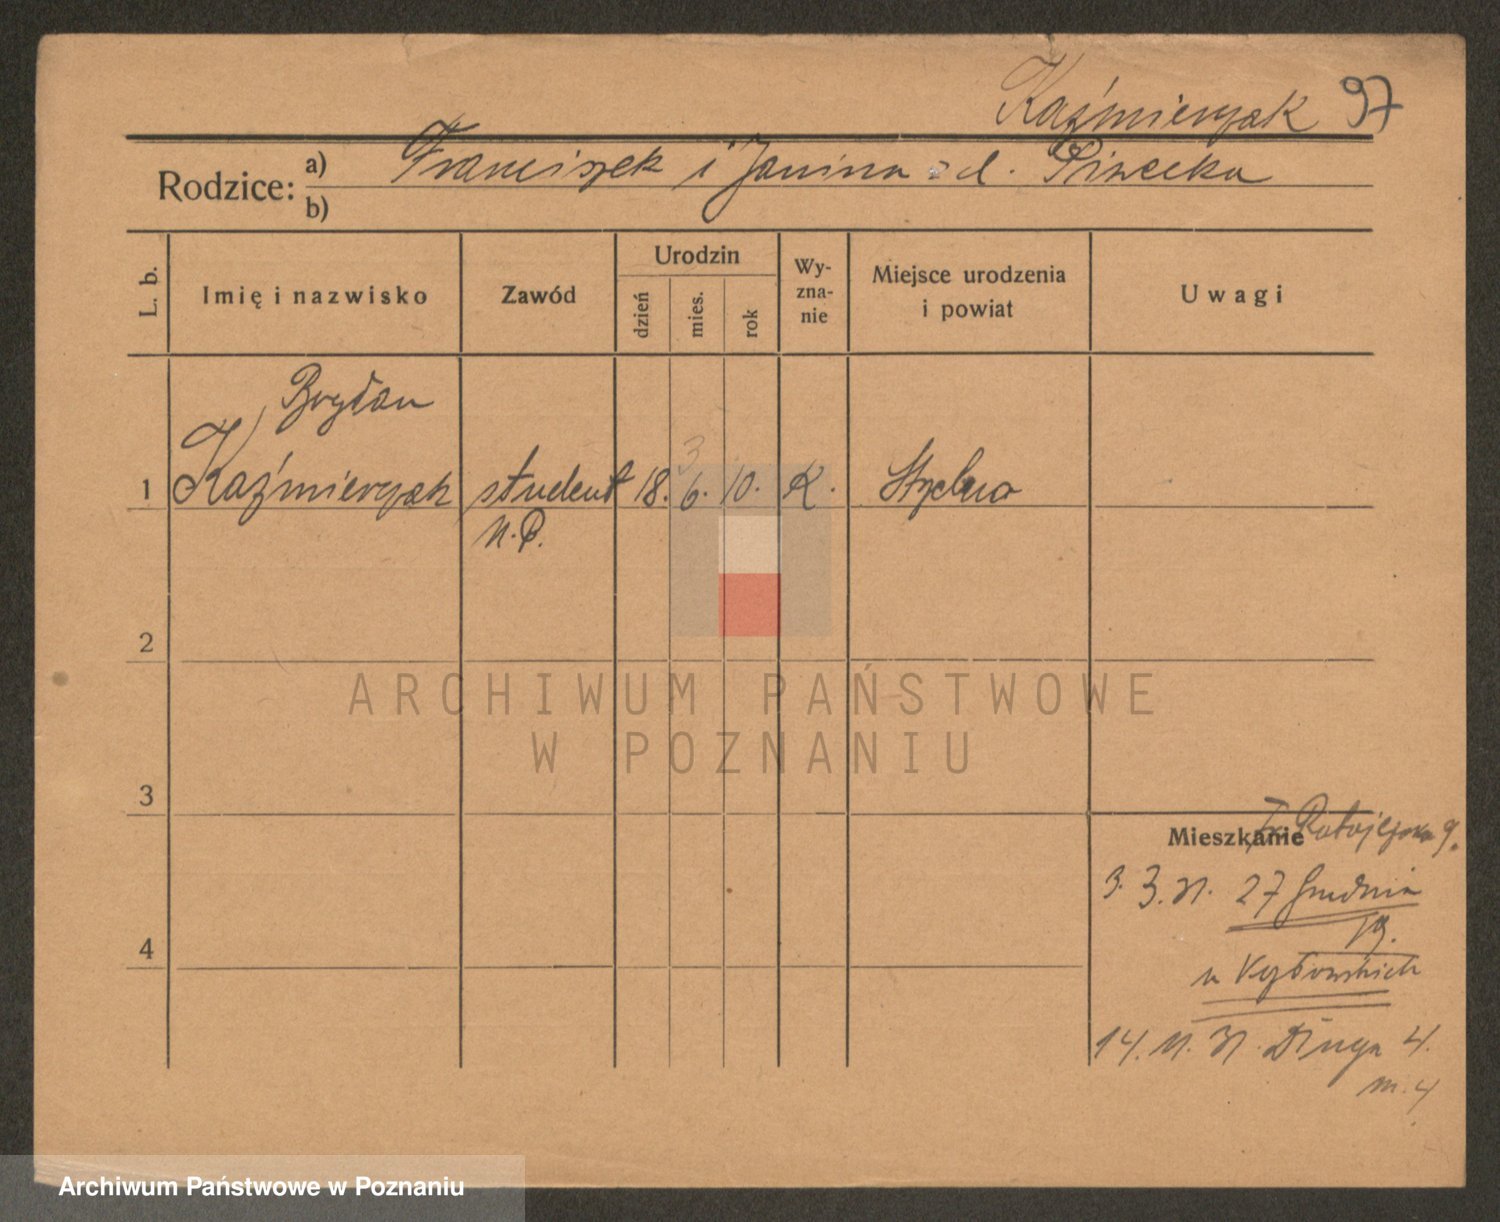 Kaźmierczak 97
Rodzice: a) Franciszek i Janina z d. Piwecka
b)
L. b. Imię i nazwisko Zawód Urodzin dzień mies. rok Wyznanie Miejsce urodzenia i powiat Uwagi
Bogdan
3
1 Kaźmierczak student 18. 6. 10. K. Strzelno
U.P.
2
ARCHIWUM PAŃSTWOWE
W POZNANIU
3
Mieszkanie Ratajczaka 9.
3. 3. 31. 27 Grudnia
19.
u
4
14. 11. 31. Długa 4.
m. 4
Archiwum Państwowe w Poznaniu